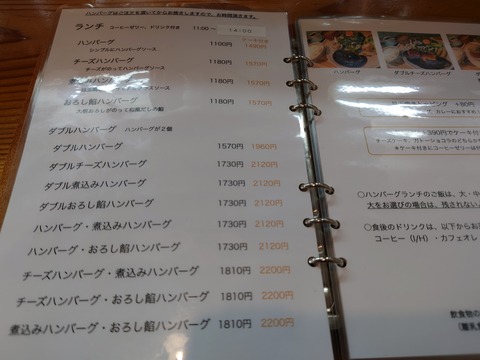 ハンバーグはご注文を頂いてからお焼きしますので、お時間頂きます。
ランチ コーヒーゼリー、ドリンク付き 11:00～14:00
ケーキ付き
ハンバーグ 1100円 1490円
シンプルにハンバーグソース
チーズハンバーグ 1180円 1570円
チーズがのってハンバーグソース
煮込みハンバーグ 1180円 1570円
おろし餡ハンバーグ 1180円 1570円
大根おろしがのって和風だしの餡
ダブルハンバーグ ハンバーグが2個
ダブルハンバーグ 1570円 1960円
ダブルチーズハンバーグ 1730円 2120円
ダブル煮込みハンバーグ 1730円 2120円
ダブルおろし餡ハンバーグ 1730円 2120円
ハンバーグ・煮込みハンバーグ 1730円 2120円
ハンバーグ・おろし餡ハンバーグ 1730円 2120円
チーズハンバーグ・煮込みハンバーグ 1810円 2200円
チーズハンバーグ・おろし餡ハンバーグ 1810円 2200円
煮込みハンバーグ・おろし餡ハンバーグ 1810円 2200円
ハンバーグ ダブルチーズハンバーグ
ッピング +80円
カレーにおすすめ
390円でケーキ付
チーズケーキ、ガトーショコラのどちらか
※ケーキ付きにコーヒーゼリーは付
〇ハンバーグランチのご飯は、大・中
大をお選びの場合は、残されない
〇食後のドリンクは、以下からお
コーヒー (I/H)・カフェオレ
飲食物の
(離乳